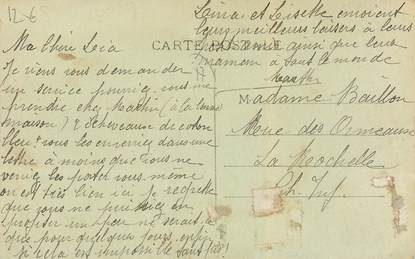 12 €
Lina et Lisette envoient
leurs meilleurs baisers à leurs
ainsi que leur
maman à tout le monde
Ma Chère Léa
CARTE POSTALE
Je viens vous demander
un service pourriez vous me
prendre chez Martin (à la
maison) 2 écheveaux de coton
bleu & vous les enverriez dans une
lettre à moins que vous ne
veniez les porter vous même
on est très bien ici je regrette
que vous ne puissiez en
profiter un peu ne serait-ce
que pour quelques jours enfin
si cela est impossible tant pis!
Madame Baillon
Rue des Ormeaux
La Rochelle
Ch. Inf.